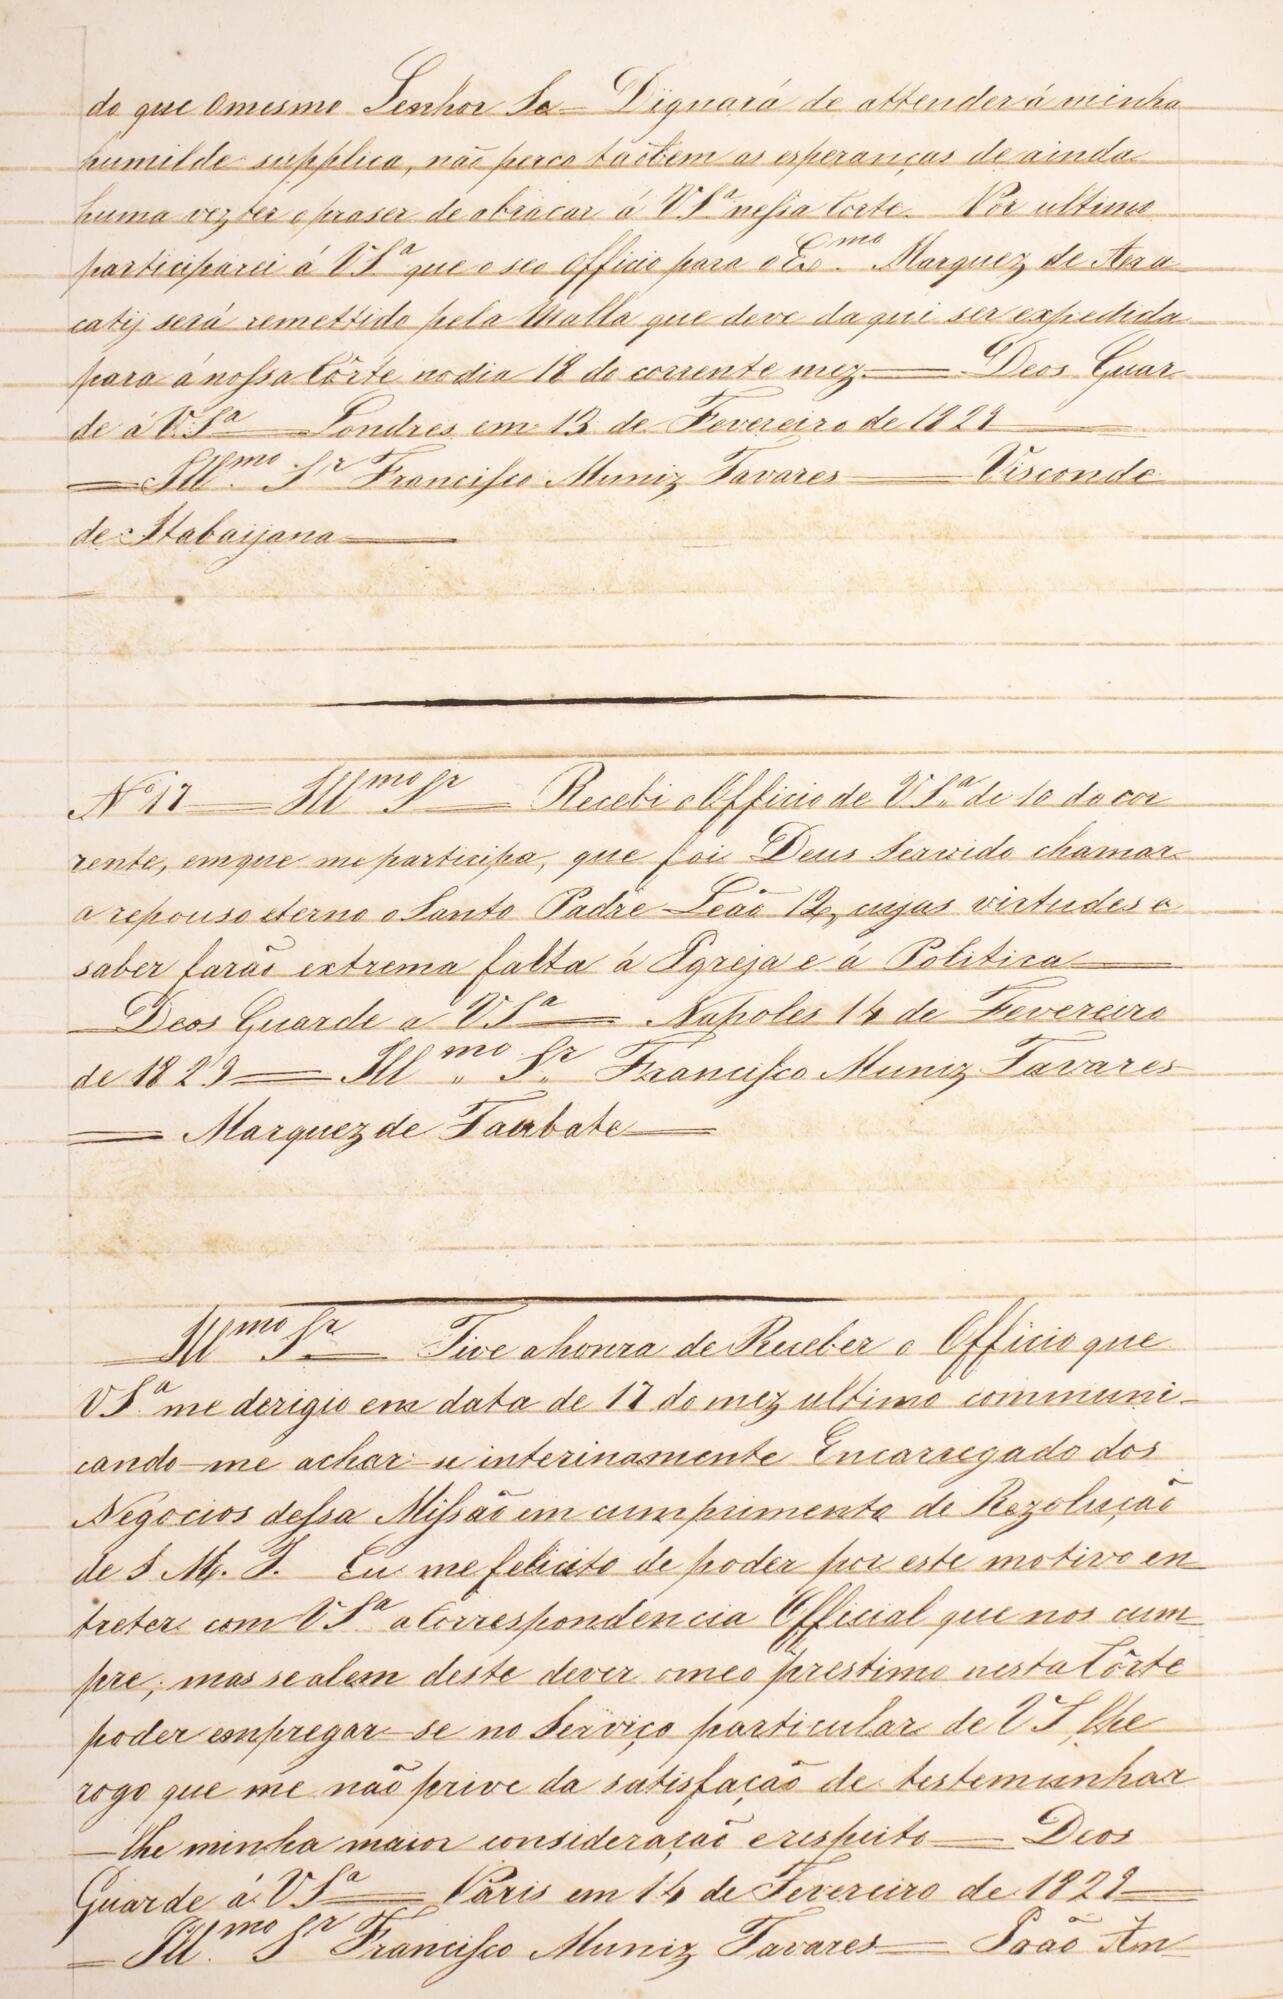 do que o mesmo Senhor Se Dignará de attender á minha
humilde supplica, não perco tãobem as esperanças de ainda
huma vez ter o praser de abraçar á VSª nessa Côrte. Por ultimo
participarei á VSª que o seo officio para o Exmo. Marquez de Ara
catij será remettido pela Malla que deve daqui ser expedida
para á nossa Côrte no dia 18 do corrente mez — Deos Guar
de á VSª — Londres em 13 de Fevereiro de 1829 —
— Illmo. Sr Francisco Muniz Tavares — Visconde
de Itabaijana —
Nº 17 — Illmo Sr — Recebi o Officio de VSª de 10 do cor
rente, em que me participa, que foi Deus Servido chamar
a repouso eterno o Santo Padre Leão 12, cujas virtudes e
saber farão extrema falta á Igreja e á Politica —
— Deos Guarde a VSª — Napoles 14 de Fevereiro
de 1829 — Illmo Sr Francisco Muniz Tavares
— Marquez de Taubate —
— Illmo Sr — Tive a honra de Receber o Officio que
VSª me derigio em data de 17 do mez ultimo communi-
cando-me achar-se interinamente Encarregado dos
Negocios dessa Missão em cumprimento de Rezolução
de S. M. I. Eu me felicito de poder por este motivo en-
treter com VSª a Correspondencia Official que nos cum-
pre; mas se alem deste dever o meo prestimo nesta Côrte
poder empregar-se no Serviço particular de VS, lhe
rogo que me não prive da satisfação de testemunhar
-lhe minha maior consideração e respeito — Deos
Guarde á VSª — Paris em 14 de Fevereiro de 1829 —
— Illmo. Sr Francisco Muniz Tavares — João An-